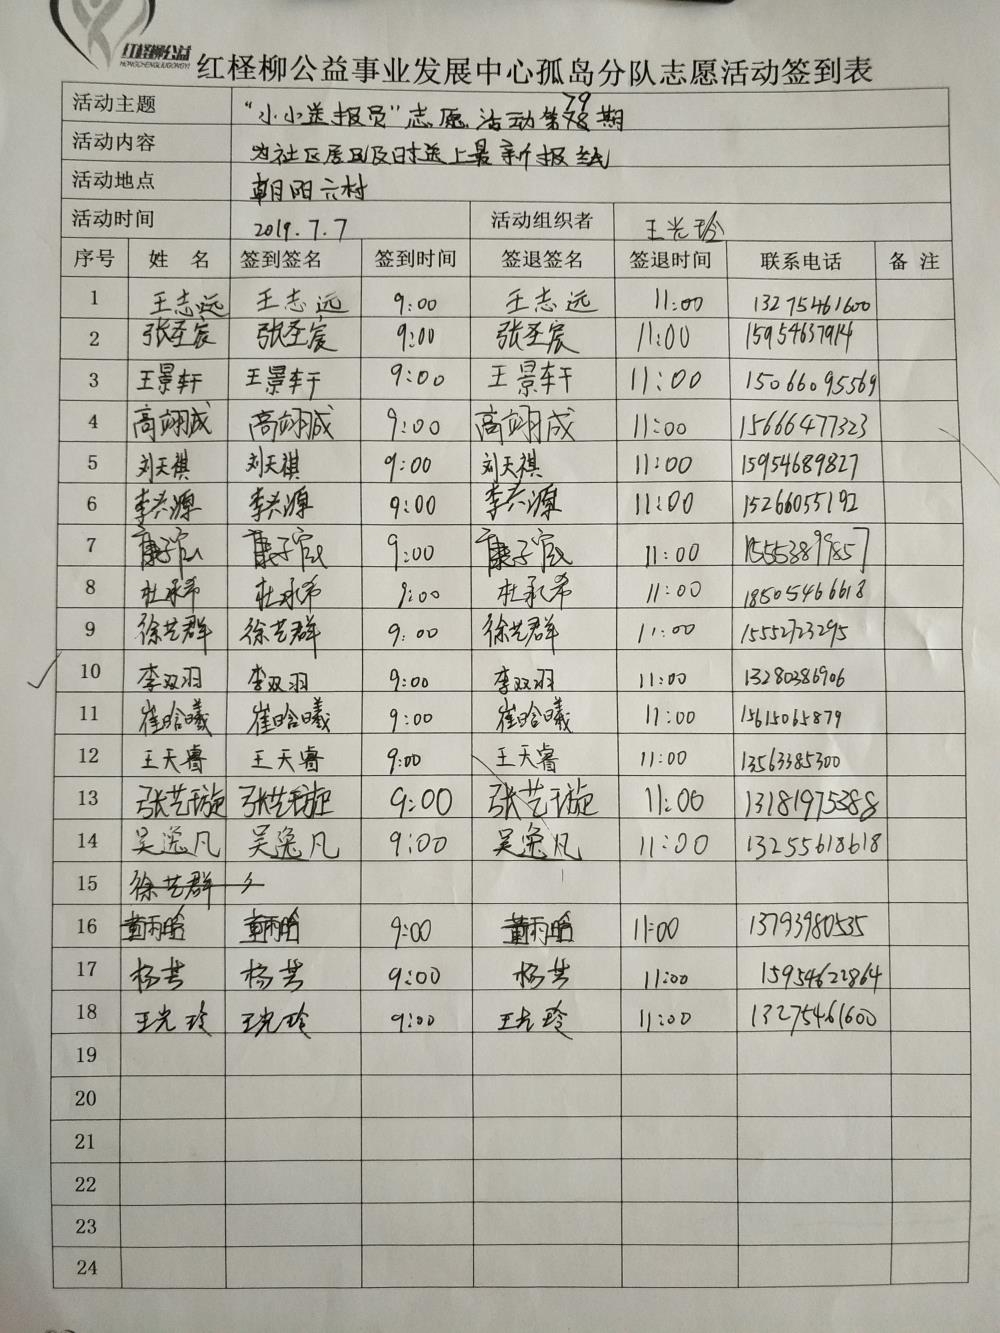 红柽柳公益
HONGCHENGLIUGONGYI
红柽柳公益事业发展中心孤岛分队志愿活动签到表
活动主题 “小小送报员”志愿活动第79期
活动内容 为社区居民及时送上最新报纸
活动地点 朝阳六村
活动时间 2019.7.7 活动组织者 王光玲
序号 姓 名 签到签名 签到时间 签退签名 签退时间 联系电话 备 注
1 王志远 王志远 9:00 王志远 11:00 13275461600
2 张圣宸 张圣宸 9:00 张圣宸 11:00 15954637914
3 王景轩 王景轩 9:00 王景轩 11:00 15066095569
4 高翊成 高翊成 9:00 高翊成 11:00 15666477323
5 刘天祺 刘天祺 9:00 刘天祺 11:00 15954689827
6 李兴源 李兴源 9:00 李兴源 11:00 15266055192
7 康子宸 康子宸 9:00 康子宸 11:00 15553899857
8 杜承希 杜承希 9:00 杜承希 11:00 18505466618
9 徐艺群 徐艺群 9:00 徐艺群 11:00 15552723295
10 李双羽 李双羽 9:00 李双羽 11:00 13280386906
11 崔晗曦 崔晗曦 9:00 崔晗曦 11:00 15615065879
12 王天睿 王天睿 9:00 王天睿 11:00 13563385300
13 张艺璇 张艺璇 9:00 张艺璇 11:00 13181975388
14 吴逸凡 吴逸凡 9:00 吴逸凡 11:00 13255618618
15 徐艺群
16 董雨晗 董雨晗 9:00 董雨晗 11:00 13793980535
17 杨芸 杨芸 9:00 杨芸 11:00 15954622864
18 王光玲 王光玲 9:00 王光玲 11:00 13275461600
19
20
21
22
23
24